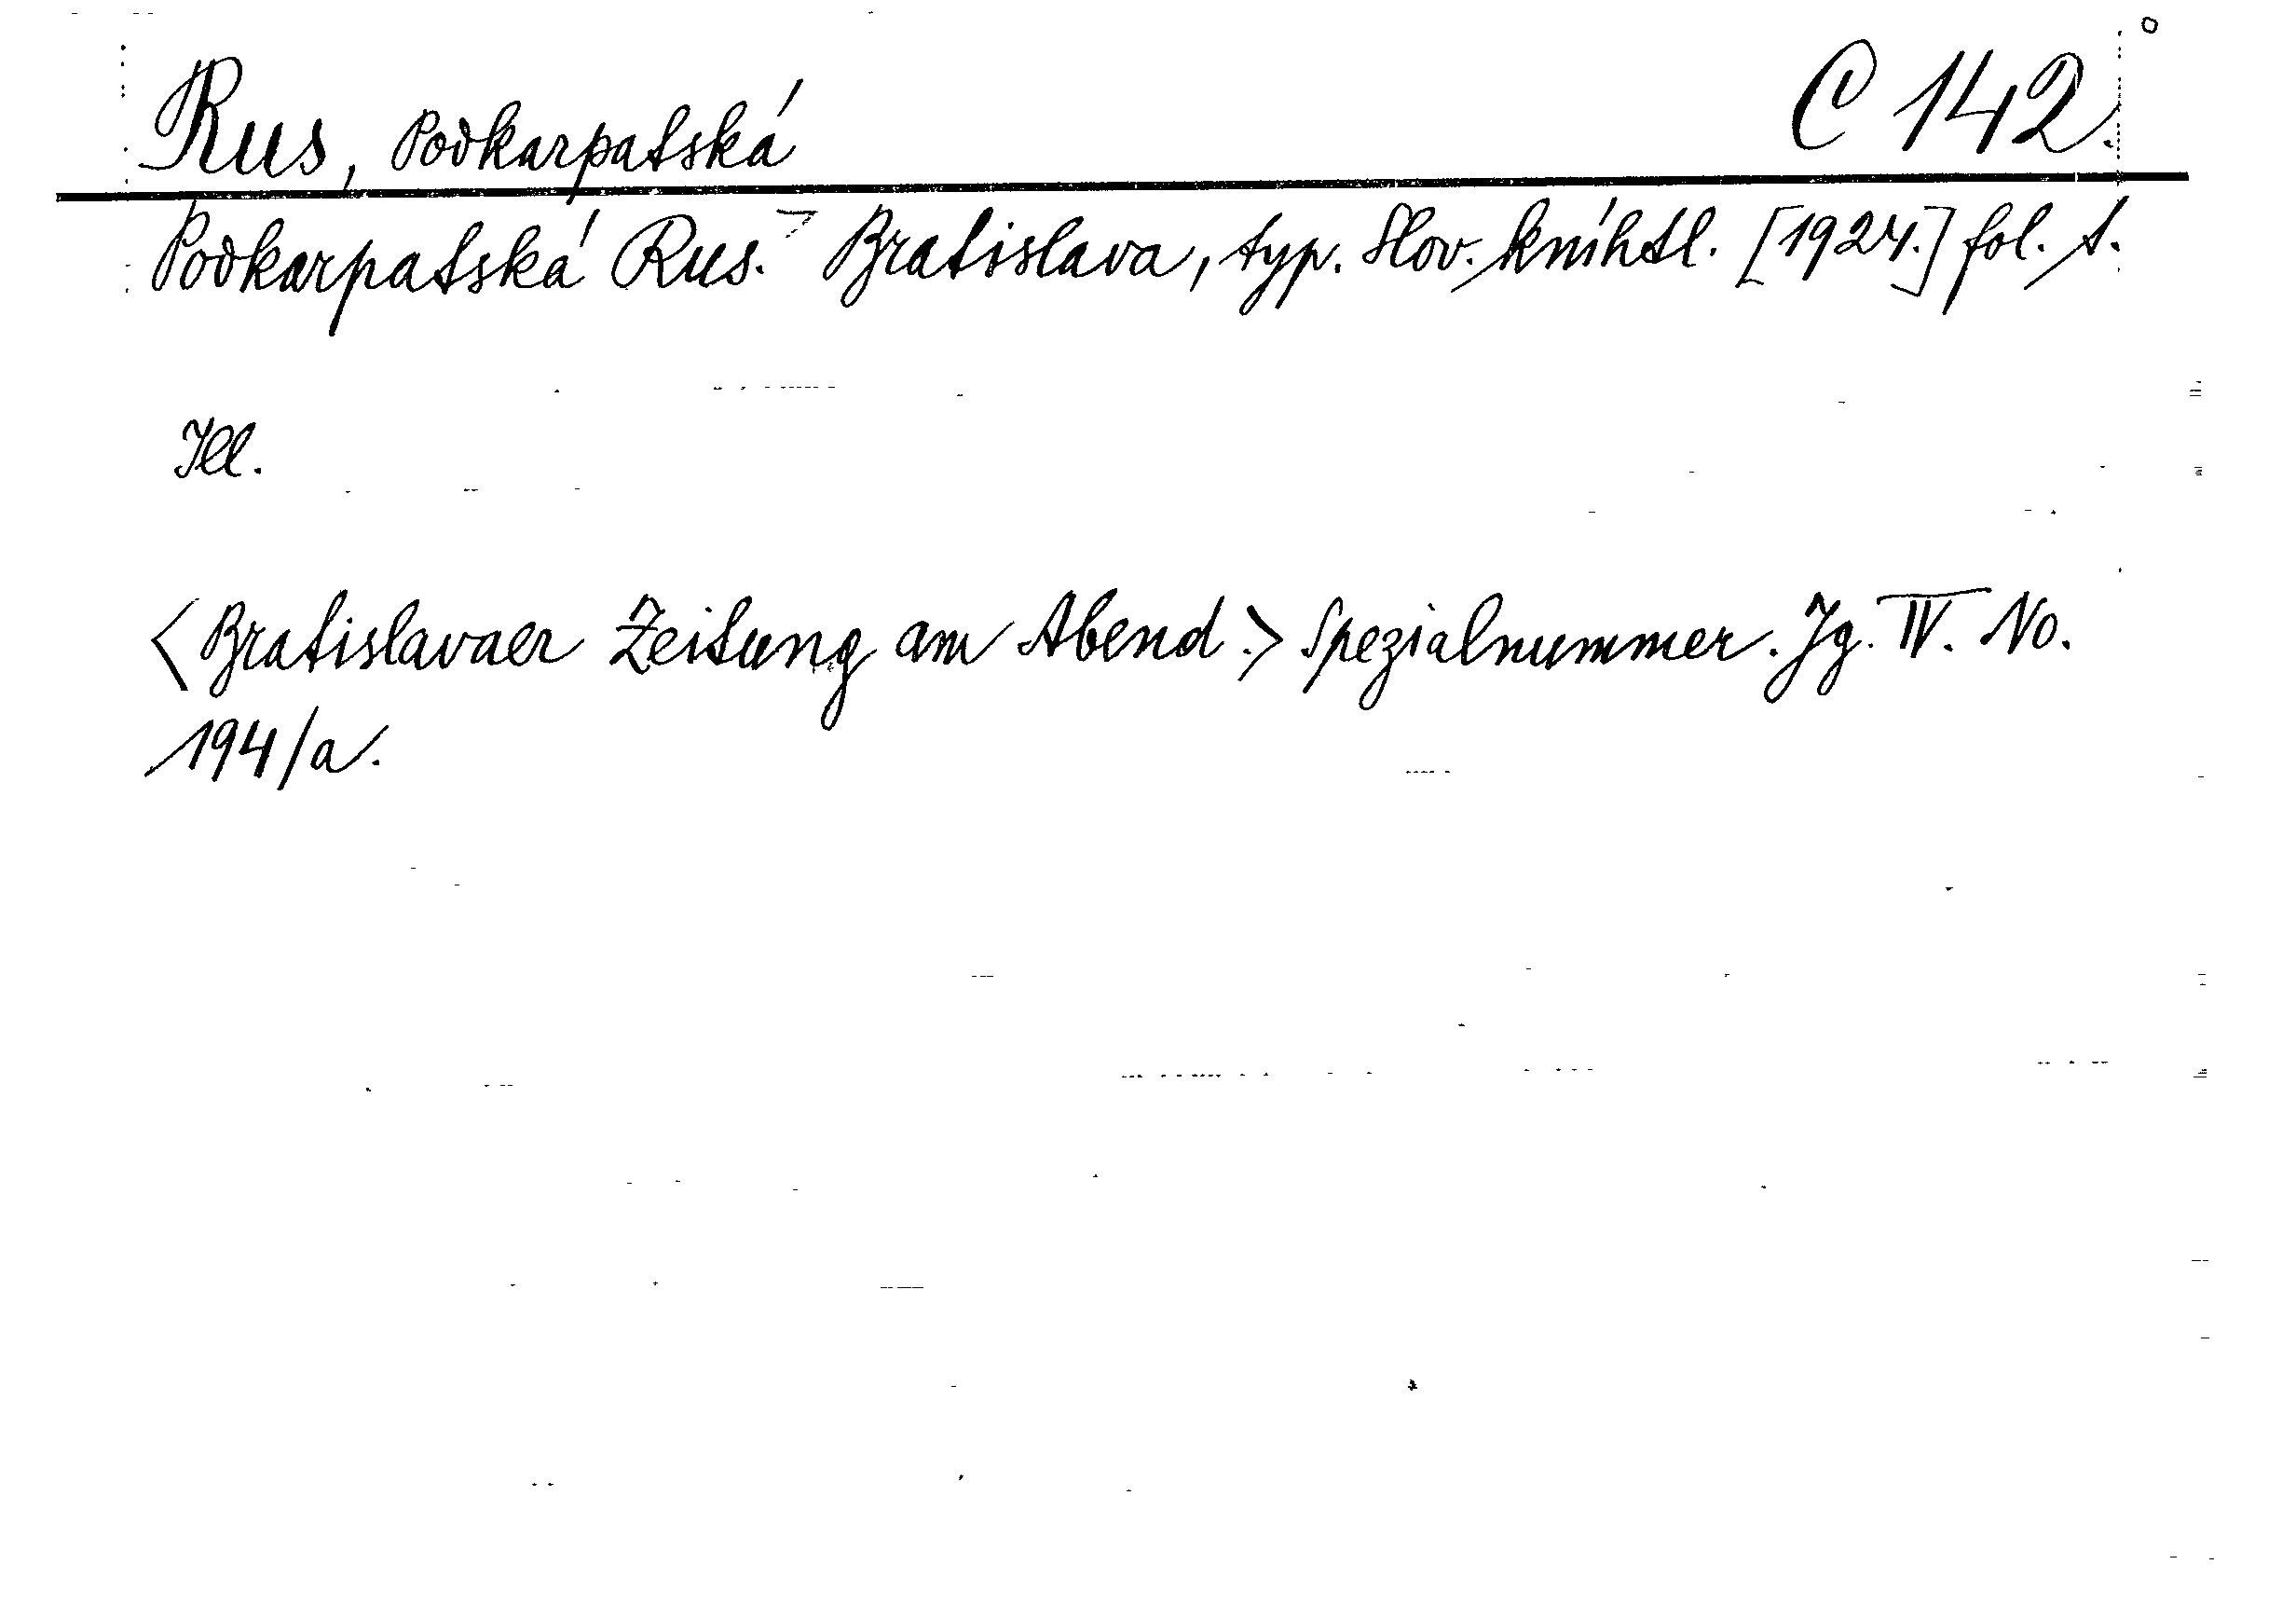 Rus, Podkarpatská C 142.
Podkarpatská Rus. Bratislava, typ. Slov. kníhtl. [1924.] fol. t.
Ill.
<Bratislavaer Zeitung am Abend.> Spezialnummer. Jg. IV. No.
194/a.